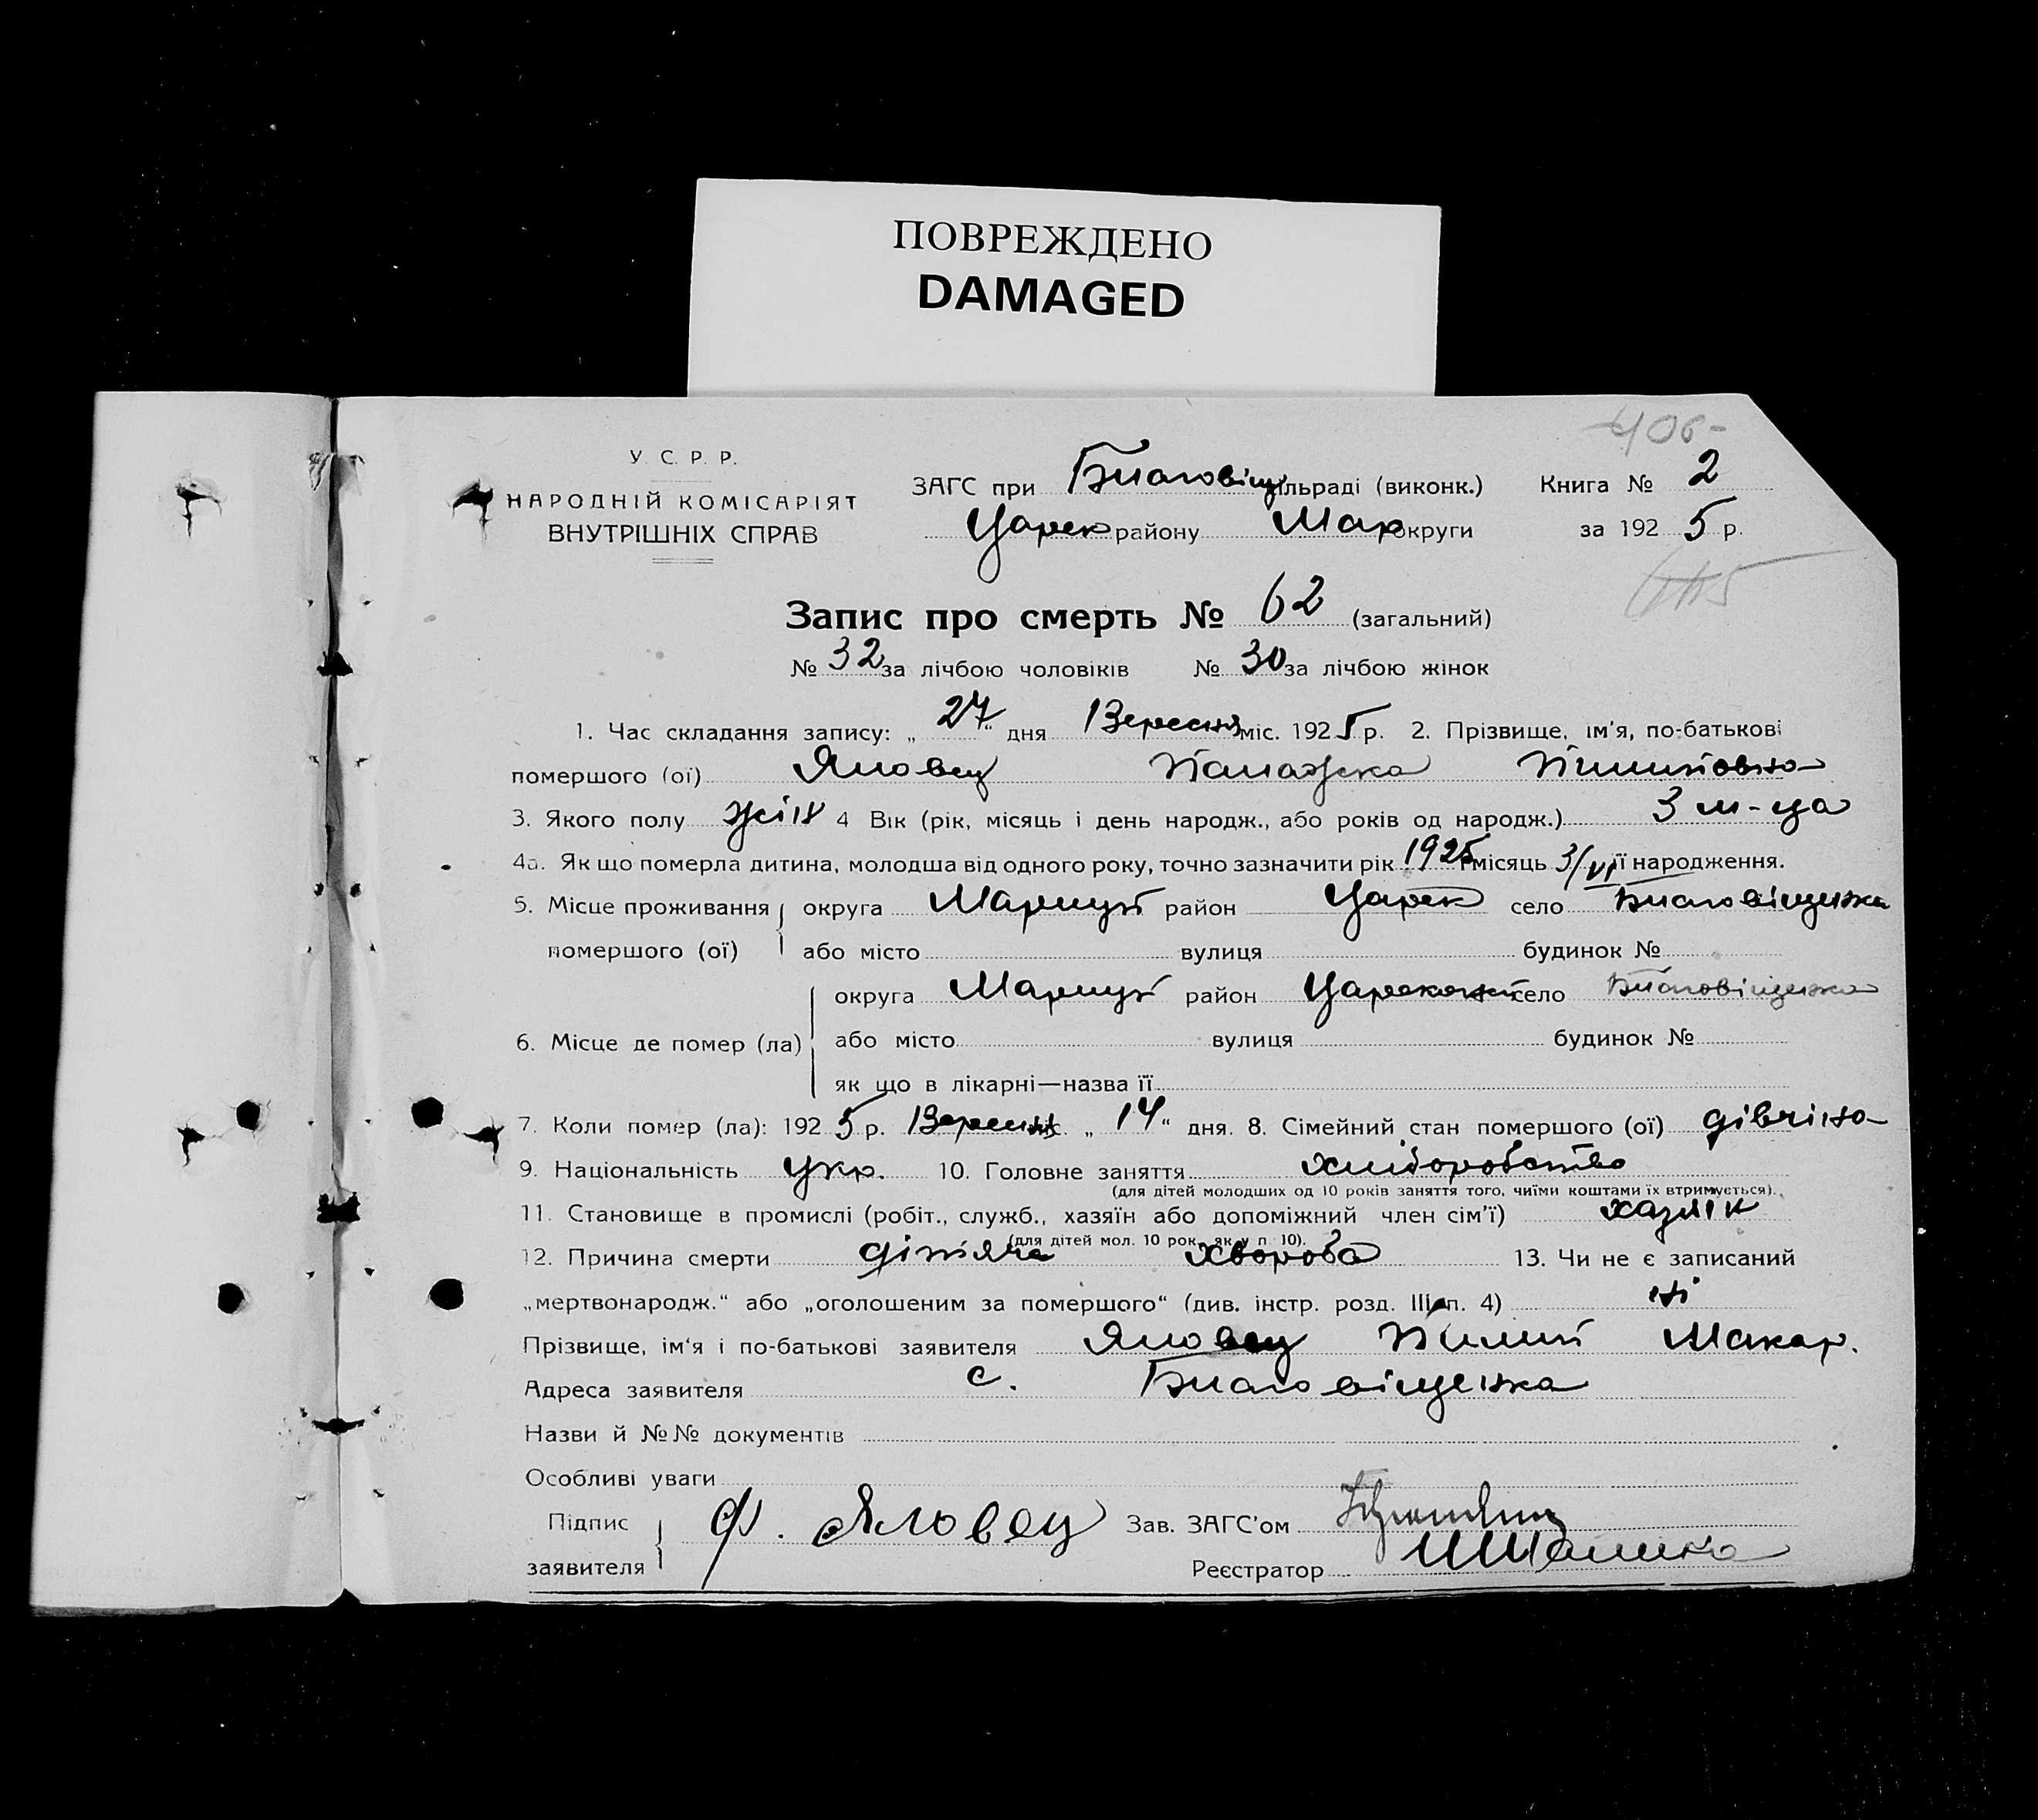 ПОВРЕЖДЕНО
DAMAGED
406-
У. С. Р. Р.
НАРОДНІЙ КОМІСАРІЯТ
ВНУТРІШНІХ СПРАВ
ЗАГС при Благовіщ сільраді (виконк.) Книга № 2
Царек району Мар округи за 1925 р.
Запис про смерть № 62 (загальний)
№ 32 за лічбою чоловіків № 30 за лічбою жінок
1. Час складання запису: „27“ дня Вересня міс. 1925 р. 2. Прізвище, ім'я, по-батькові
помершого (ої) Яловец Палажка Пилиповна
3. Якого полу жін 4 Вік (рік, місяць і день народж., або років од народж.) 3 м-ца
4а. Як що померла дитина, молодша від одного року, точно зазначити рік 1925 місяць 3/VI її народження.
5. Місце проживання округа Маріуп район Царек село Благовіщенка
помершого (ої) або місто вулиця будинок №
округа Маріуп район Царекон село Благовіщенка
6. Місце де помер (ла) або місто вулиця будинок №
як що в лікарні—назва її
7. Коли помер (ла): 1925 р. Вересня міс. „14“ дня. 8. Сімейний стан помершого (ої) дівчина
9. Національність укр. 10. Головне заняття хліборобство
(для дітей молодших од 10 років заняття того, чиїми коштами їх втримується).
11. Становище в промислі (робіт., служб., хазяїн або допоміжний член сім'ї) хазяїн
(для дітей мол. 10 рок. як у п 10).
12. Причина смерти дітяча хвороба 13. Чи не є записаний
„мертвонародж.“ або „оголошеним за помершого“ (див. інстр. розд. III, п. 4) ні
Прізвище, ім'я і по-батькові заявителя Яловец Пилип Макар.
Адреса заявителя с. Благовіщенка
Назви й №№ документів
Особливі уваги
Підпис заявителя Ф. Яловец Зав. ЗАГС'ом
Реєстратор